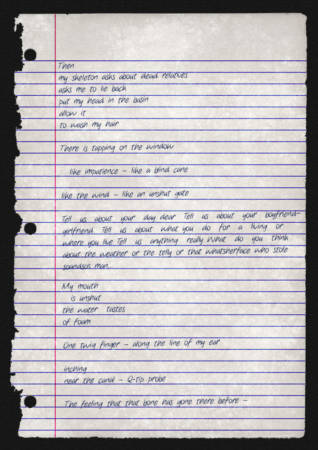 Then
my skeleton asks about dead relatives
asks me to lie back
put my head in the basin
allow it
to wash my hair
There is tapping on the window
like impatience – like a blind cane
like the wind – like an unshut gate
Tell us about your day dear Tell us about your boyfriend-
girlfriend Tell us about what you do for a living or
where you live Tell us anything really What do you think
about the weather or the telly or that whatsherface who stole
soandso's man...
My mouth
is unshut
the water tastes
of foam
One twig finger – along the line of my ear
inching
near the canal – Q-tip probe
The feeling that that bone has gone there before –